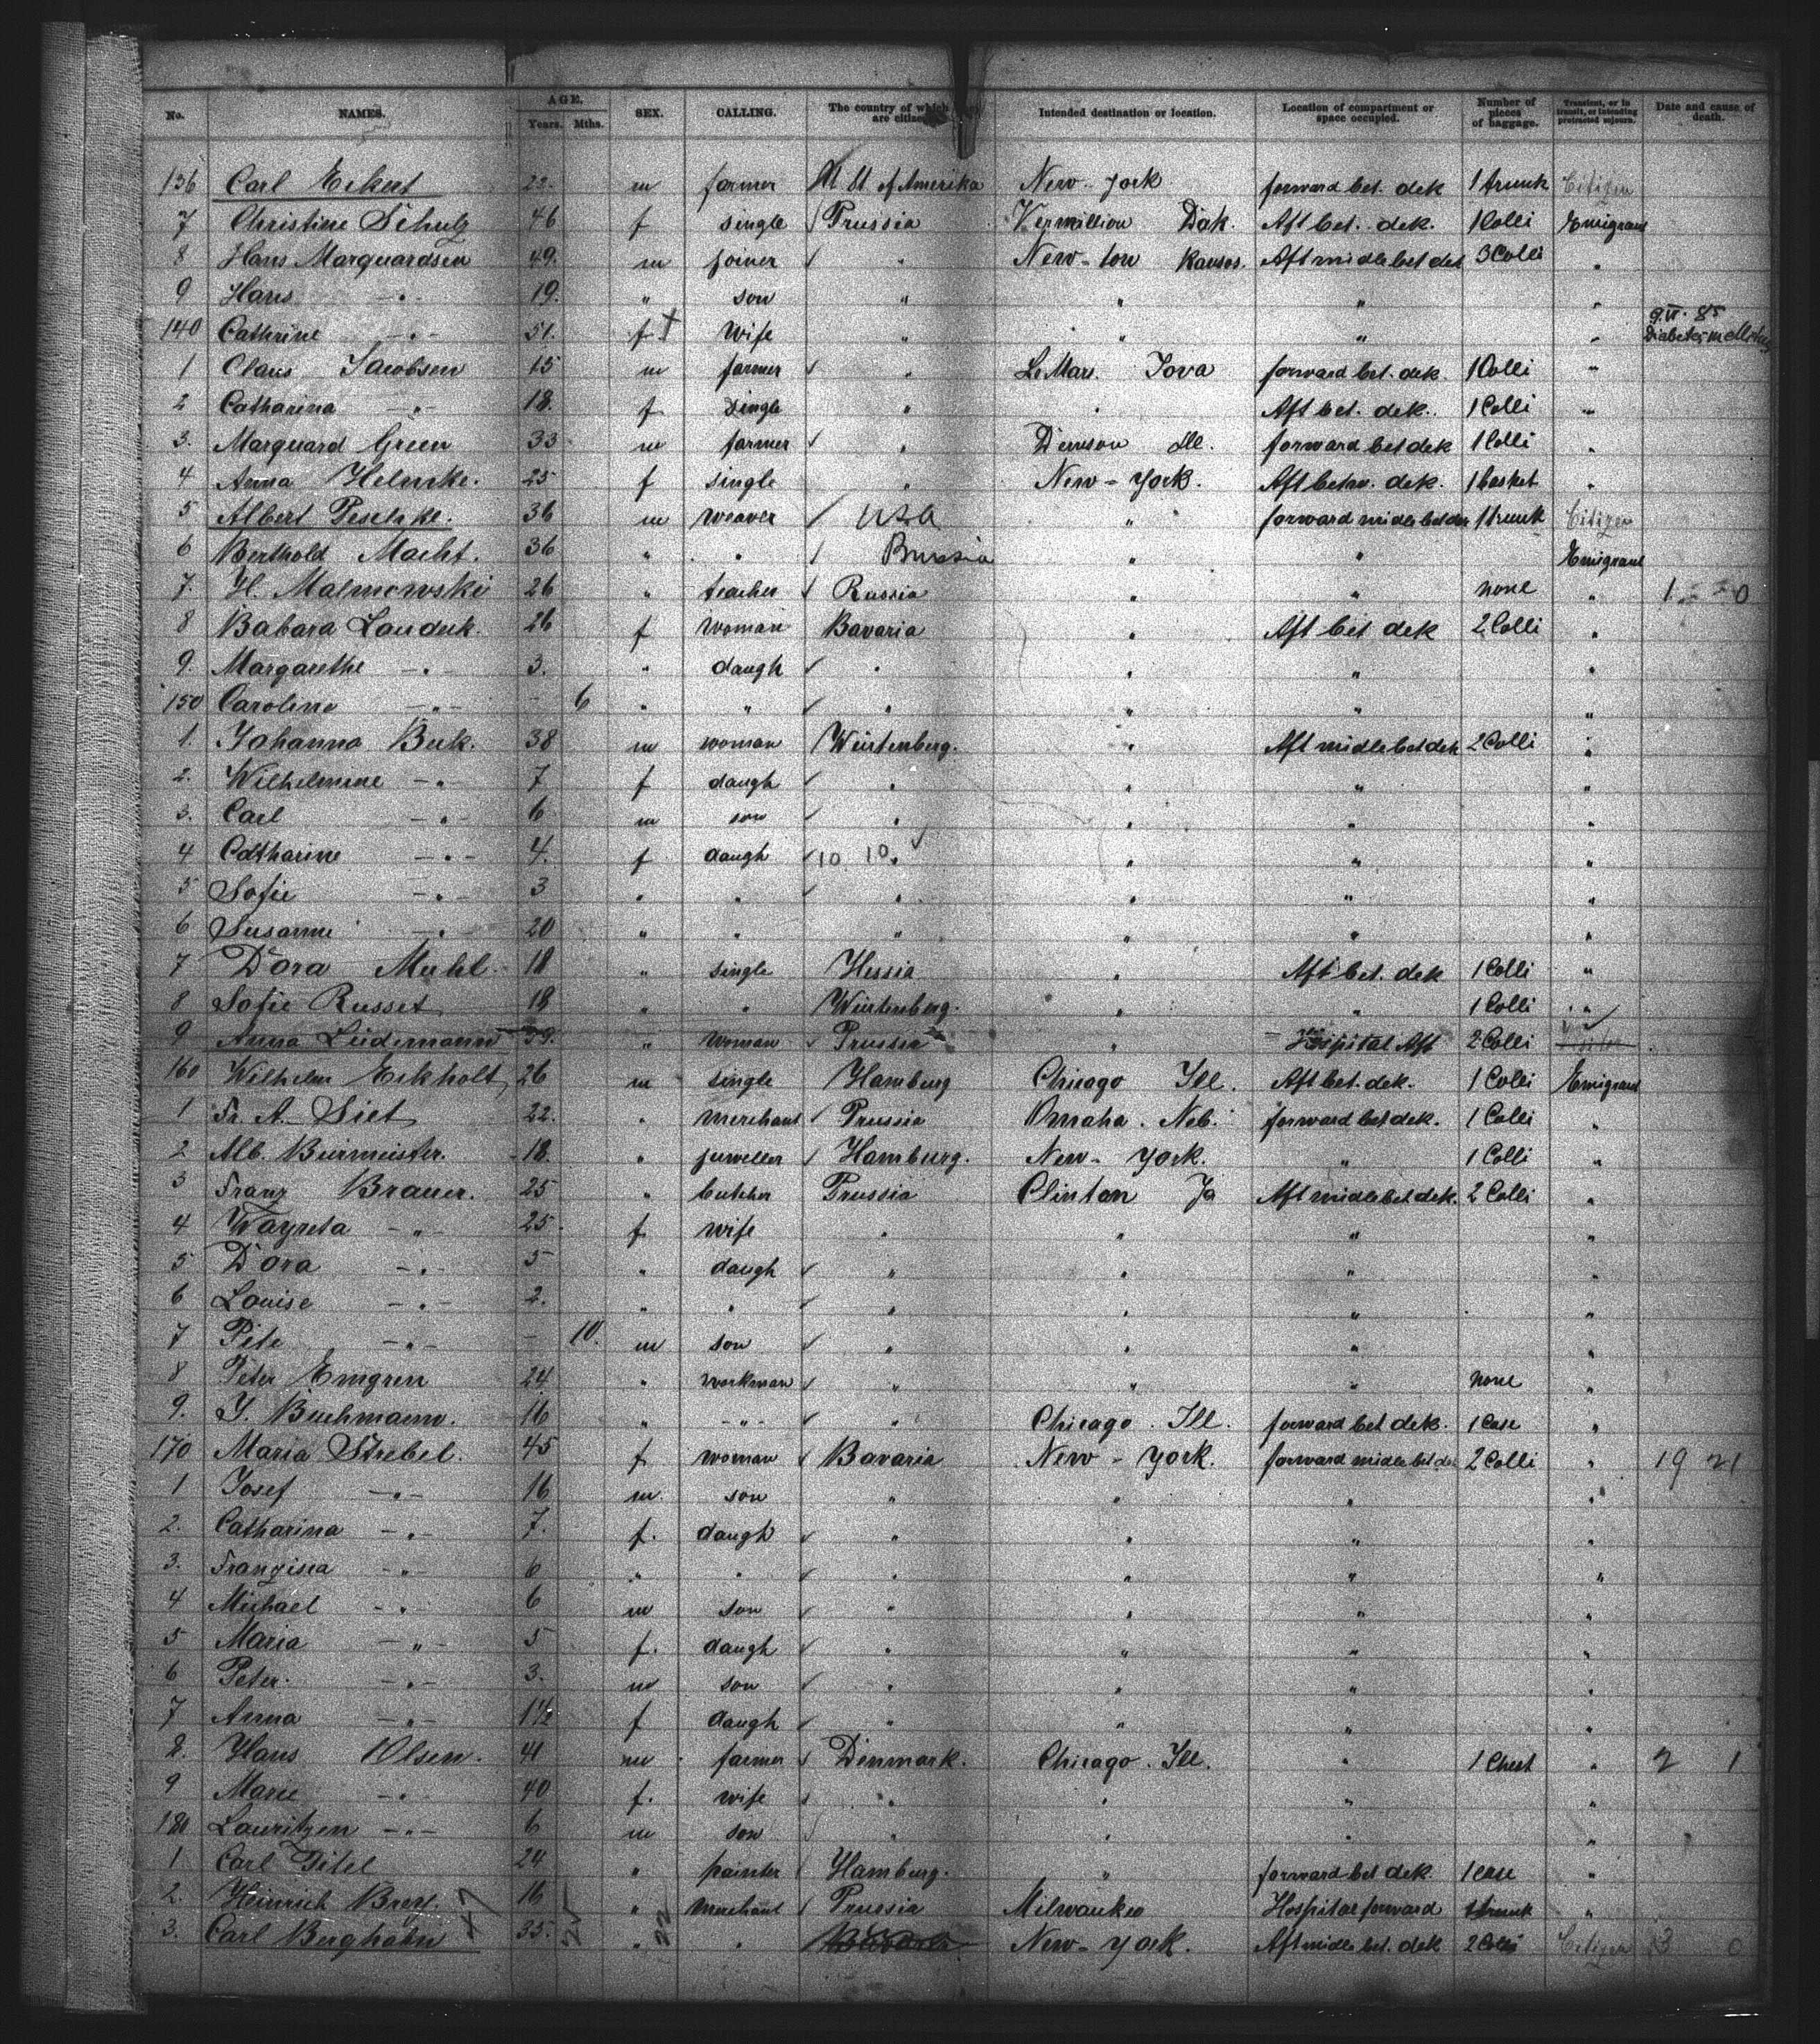 No. NAMES. AGE. Years. Mths. SEX. CALLING. The country of which are citizens Intended destination or location. Location of compartment or space occupied. Number of pieces of baggage. Transient, or in transit, or intending protracted sojourn. Date and cause of death.
136 Carl Eckert 22. m farmer U St. of Amerika New-york forward bet. dek 1 trunk Citizen
7 Christine Schulz 46 f single Prussia Vermillion Dak. Aft bet. dek. 1 Colli Emigrant
8 Hans Marquardsen 49. m joiner " New-ton Kansas. Aft midle bet dek 3 Colli "
9 Hans -"- 19. " son " " " "
140 Cathrine -"- 51. f † wife " " " " 9.VI.85 Diabetes mellitus
1 Claus Jacobsen 15 m farmer " Le Mars. Iova forward bet. dek. 1 Colli "
2 Catharina -"- 18. f single " " Aft bet. dek. 1 Colli "
3. Marquard Green 33 m farmer " Denison Ill. forward bet dek 1 Colli "
4 Anna Helmke. 25 f single " New-york. Aft betw. dek. 1 basket "
5 Albert Peschke. 36 m weaver USA " forward midle bet dek 1 trunk Citizen
6 Berthold Macht. 36 " " Prussia " " Emigrant
7. H. Malmowski 26 " teacher Russia " " none " 1 0
8 Babara Lauderk. 26 f woman Bavaria " Aft bet dek 2 Colli "
9. Margarethe -"- 3. " daugh " " " "
150 Caroline -"- - 6 " " " " " "
1. Johanna Beck. 38 m woman Würtenberg. " Aft midle bet dek 2 Colli "
2. Wilhelmine -"- 7 f daugh " " " "
3. Carl -"- 6 m son " " " "
4 Catharine -"- 4. f daugh 10 10 " " " "
5 Sofie -"- 3 " " " " " "
6 Susanne -"- 20 " " " " " "
7 Dora Muhl. 18 " single Hessia " Aft bet. dek 1 Colli "
8 Sofie Russet 18 " " Würtenberg. " " 1 Colli "
9 Anna Lüdemann 39. " woman Prussia " Hospital Aft 2 Colli
160 Wilhelm Eckholt 26 m single Hamburg Chicago Ill. Aft bet. dek. 1 Colli Emigrant
1 Fr. A. Siet 22. " merchant Prussia Omaha. Neb. forward bet dek. 1 Colli "
2 Alb. Burmeister. 18. " juweller Hamburg. New-york. " 1 Colli "
3 Franz Brauer. 25 " butcher Prussia Clinton Ja Aft midle bet dek. 2 Colli "
4 Wayreta -"- 25 f wife " " " "
5 Dora -"- 5 " daugh " " " "
6 Louise -"- 2. " " " " " "
7 Pete -"- - 10. m son " " " "
8 Peter Emgren 24 " workman " " " none "
9. J. Buchmann. 16 " -"- " Chicago. Ill. forward bet dek. 1 Case "
170 Maria Strebel. 45 f woman Bavaria New-york. forward midle bet dek 2 Colli " 19 21
1 Josef -"- 16 m. son " " " "
2. Catharina -"- 7. f. daugh " " " "
3. Franzisca -"- 6 " " " " " "
4 Michael -"- 6 m son " " " "
5 Maria -"- 5 f. daugh " " " "
6 Peter. -"- 3. m son " " " "
7 Anna -"- 1½ f daugh " " " "
8. Hans Olsen. 41 m farmer Denmark. Chicago. Ill. " 1 Chest " 2 1
9 Marie -"- 40 f. wife " " " "
180 Lauritzen -"- 6 m son " " " "
1 Carl Pitel 24 " painter Hamburg. " forward bet dek. 1 case "
2. Heinrich 16 " merchant Prussia Milwaukee Hospital forward 1 trunk "
3. Carl Berghahn 35. " " Bavaria New-york. Aft midle bet. dek 2 Colli Citizen 3 0